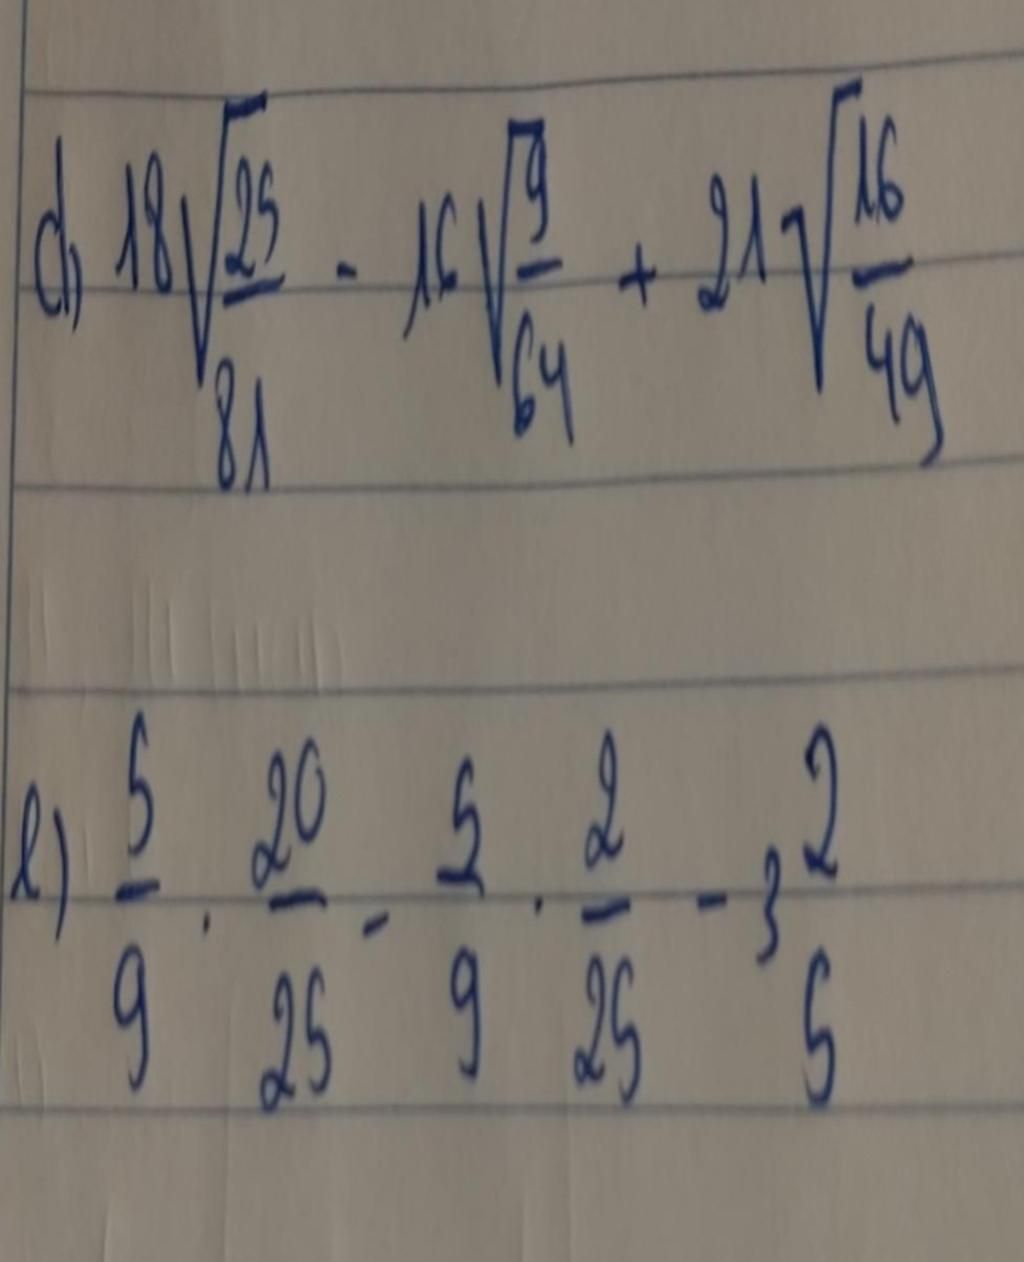 d) 18√(25/81) - 16√(9/64) + 21√(16/49)
e) 5/9 . 20/25 - 5/9 . 2/25 - 3 2/5